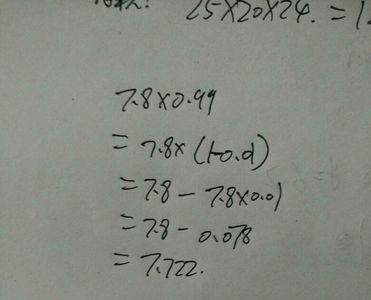 25×20×24. = 1
7.8×0.99
= 7.8×(1-0.01)
= 7.8 - 7.8×0.01
= 7.8 - 0.078
= 7.722.